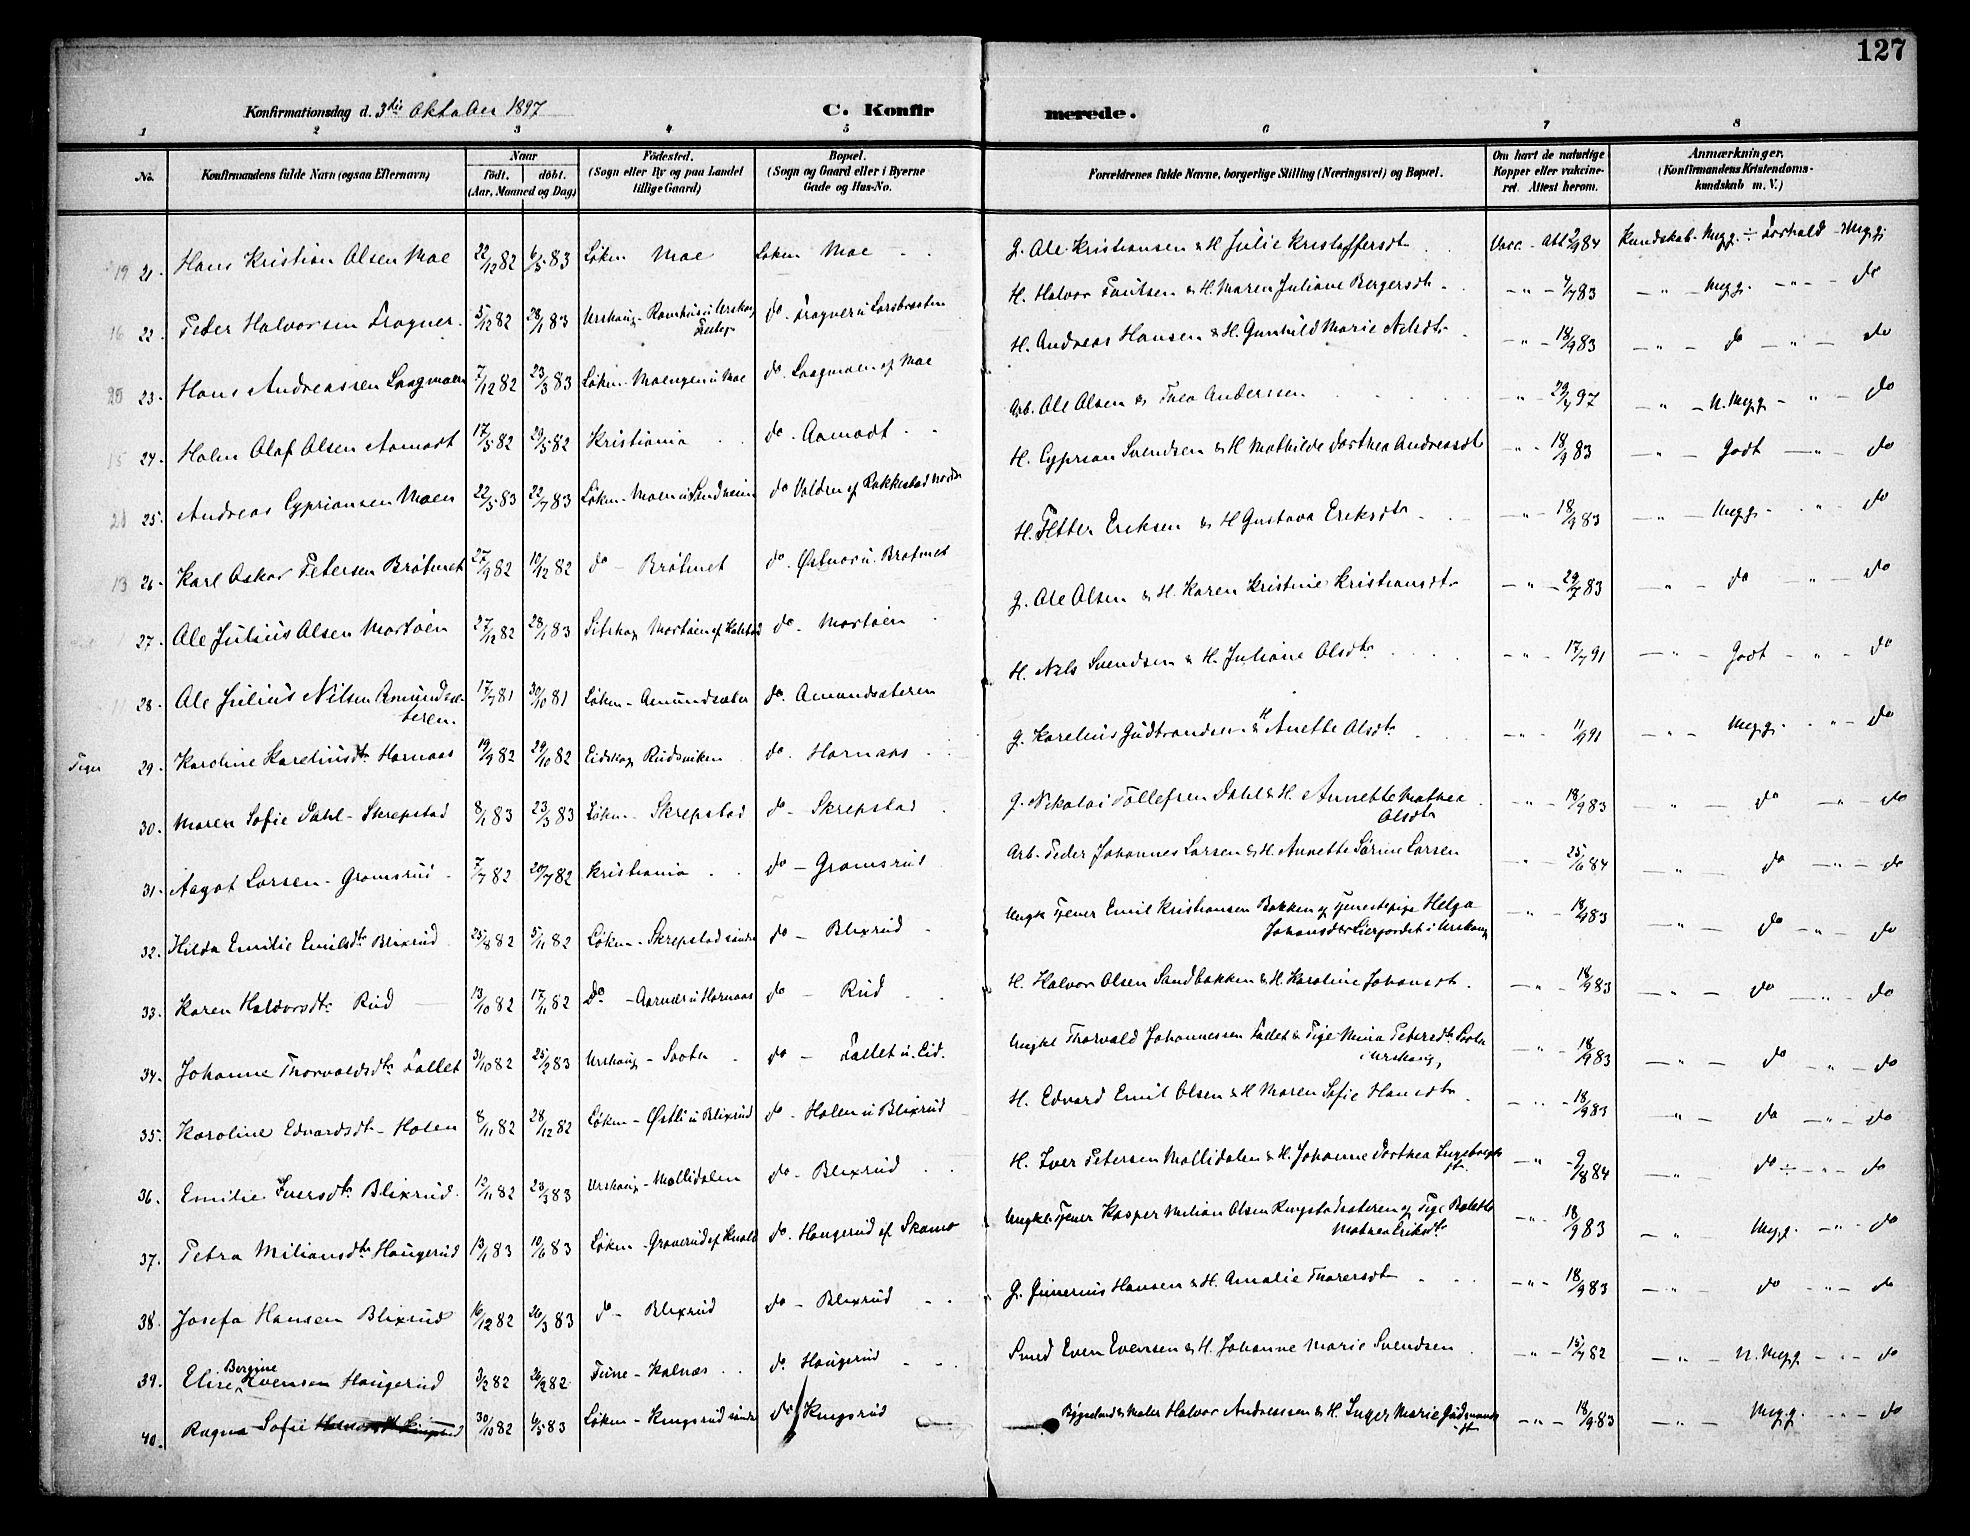 127
Konfirmationsdag d. 3die Oktober 1897
C. Konfirmerede.
1 2 3 4 5 6 7 8
No.
Konfirmandens fulde Navn (ogsaa Efternavn)
Naar
født. døbt.
(Aar, Maaned og Dag)
Fødested.
(Sogn eller By og paa Landet tillige Gaard)
Bopæl.
(Sogn og Gaard eller i Byerne Gade og Hus-No.
Forældrenes fulde Navne, borgerlige Stilling (Næringsvei) og Bopæl.
Om havt de naturlige Kopper eller vakcineret. Attest herom.
Anmærkninger.
(Konfirmandens Kristendomskundskab m. V.)
19 21. Hans Kristian Olsen Moe 22/12 82 6/5 83 Løken Moe Løken Moe G. Ole Kristiansen & H. Julie Kristoffersdtr Vacc. Att 2/9 84 Kundskab Megg ÷ Forhold Megg
16 22. Peder Halvorsen Fragner 5/12 82 28/1 83 Urskoug do. Fragner u. H. Halvor Paulsen & H. Maren Juliane Bergersdtr 7/7 83 Megg. do
20 23. Hans Andreassen Laagmoen 7/12 82 23/3 83 Løken Moengen u Moe do. Laagmoen af Moe H. Andreas Hansen & H. Gunhild Marie 18/9 83 do do
15 24. Holm Olaf Olsen Aamodt 17/5 82 29/5 82 Kristiania do. Aamodt Arb. Ole Olsen & Thea Andersen 29/4 97 N. Megg do
21 25. Andreas Cypriansen Moen 22/5 83 22/7 83 Løken Moen u do Volden af Rakkestad H. Cyprian Svendsen & H Mathilde Dorthea Andreasdtr 18/9 83 Godt do
13 26. Karl Oskar Petersen Brøtmet 27/9 82 10/12 82 do Brøtmet do. Østnor u. Brøtmet H. Petter Eriksen & H Gustava Eriksdtr 18/9 83 Megg. do
27. Ole Julius Olsen Mortoen 27/12 82 28/1 83 Setskog Mortoen af do. Mortoen G. Ole Olsen & H. Karen Kristine Kristiansdtr 29/7 83 do do
11 28. Ole Julius Nilsen Amundsæteren. 17/7 81 30/10 81 Løken Amundsæter do. Amundsæteren H. Nils Svendsen & H. Juliane Olsdtr 17/7 91 Godt do
Piger
29. Karoline Kareliusdtr Harnaes 19/9 82 29/10 82 Eidskog Rudsviken do. Harnaes G. Karelius Gudbrandsen & H Anette Olsdtr 11/9 91 Megg. do
30. Maren Sofie Dahl Skrepstad 8/1 83 23/3 83 Løken Skrepstad do Skrepstad G. Nikolai Tollefsen Dahl & H. Annette Mathea Olsdtr 18/9 83 do do
31. Aagot Larsen Gramsrud 7/7 82 20/7 82 Kristiania do Gramsrud Arb. Peder Johannes Larsen & H. Annette Sørine Larsen 25/6 84 do do
32. Hilda Emilie Emilsdtr Blixrud 25/8 82 5/11 82 Løken Skrepstad søndre do Blixrud Ungk Tjener Emil Kristiansen Bakken og Tjenestepige Helga Johansdtr Lierfordet i Urskoug 18/9 83 do do
33. Karen Halvorsdtr Rud 13/10 82 17/11 82 Do u Harnaas do Rud H. Halvor Olsen Sandbakken & H Karoline Johansdtr 18/9 83 do do
34. Johanne Thorvaldsdtr Fallet 31/10 82 25/2 83 Urskoug Sooter do Fallet u. Eid. Ungkl Thorvald Johannessen Fallet & Pige Mina Petersdtr i Urskoug 18/9 83 do do
35. Karoline Edvardsdtr Holen 8/11 82 28/12 82 Løken Østli u Blixrud do. Holen u Blixrud H. Edvard Emil Olsen & H Maren Sofie Hansdtr 18/9 83 do do
36. Emilie Iversdtr Blixrud. 12/11 82 23/3 83 Urskoug Mollidalen do. Blixrud H. Iver Petersen Mollidalen & H. Johanne Dorthea Ingeborgsdtr 9/8 84 do ÷ do
37. Petra Miliansdtr Haugerud 13/1 83 10/6 83 Løken do. Haugerud af Ungkl Tjener Kasper Milian Olsen Ringstadsæteren og Pige Mathea Eriksdtr 18/9 83 Megg. do
38. Josefa Hansen Blixrud 16/12 82 26/3 83 do Blixrud do Blixrud G. Gunerius Hansen & H. Amalie Thorersdtr 18/9 83 do do
39. Elise Bergine Evensen Haugerud 3/2 82 26/2 82 Tune Kalnæs do. Haugerud Smed Even Evensen & H. Johanne Marie Svendsen 15/7 82 N. Megg do
40. Ragna Sofie 30/10 82 6/5 83 Løken Kingsrud søndre do Kingsrud Halvor Andreassen & H. Inger Marie 18/9 83 Megg. do